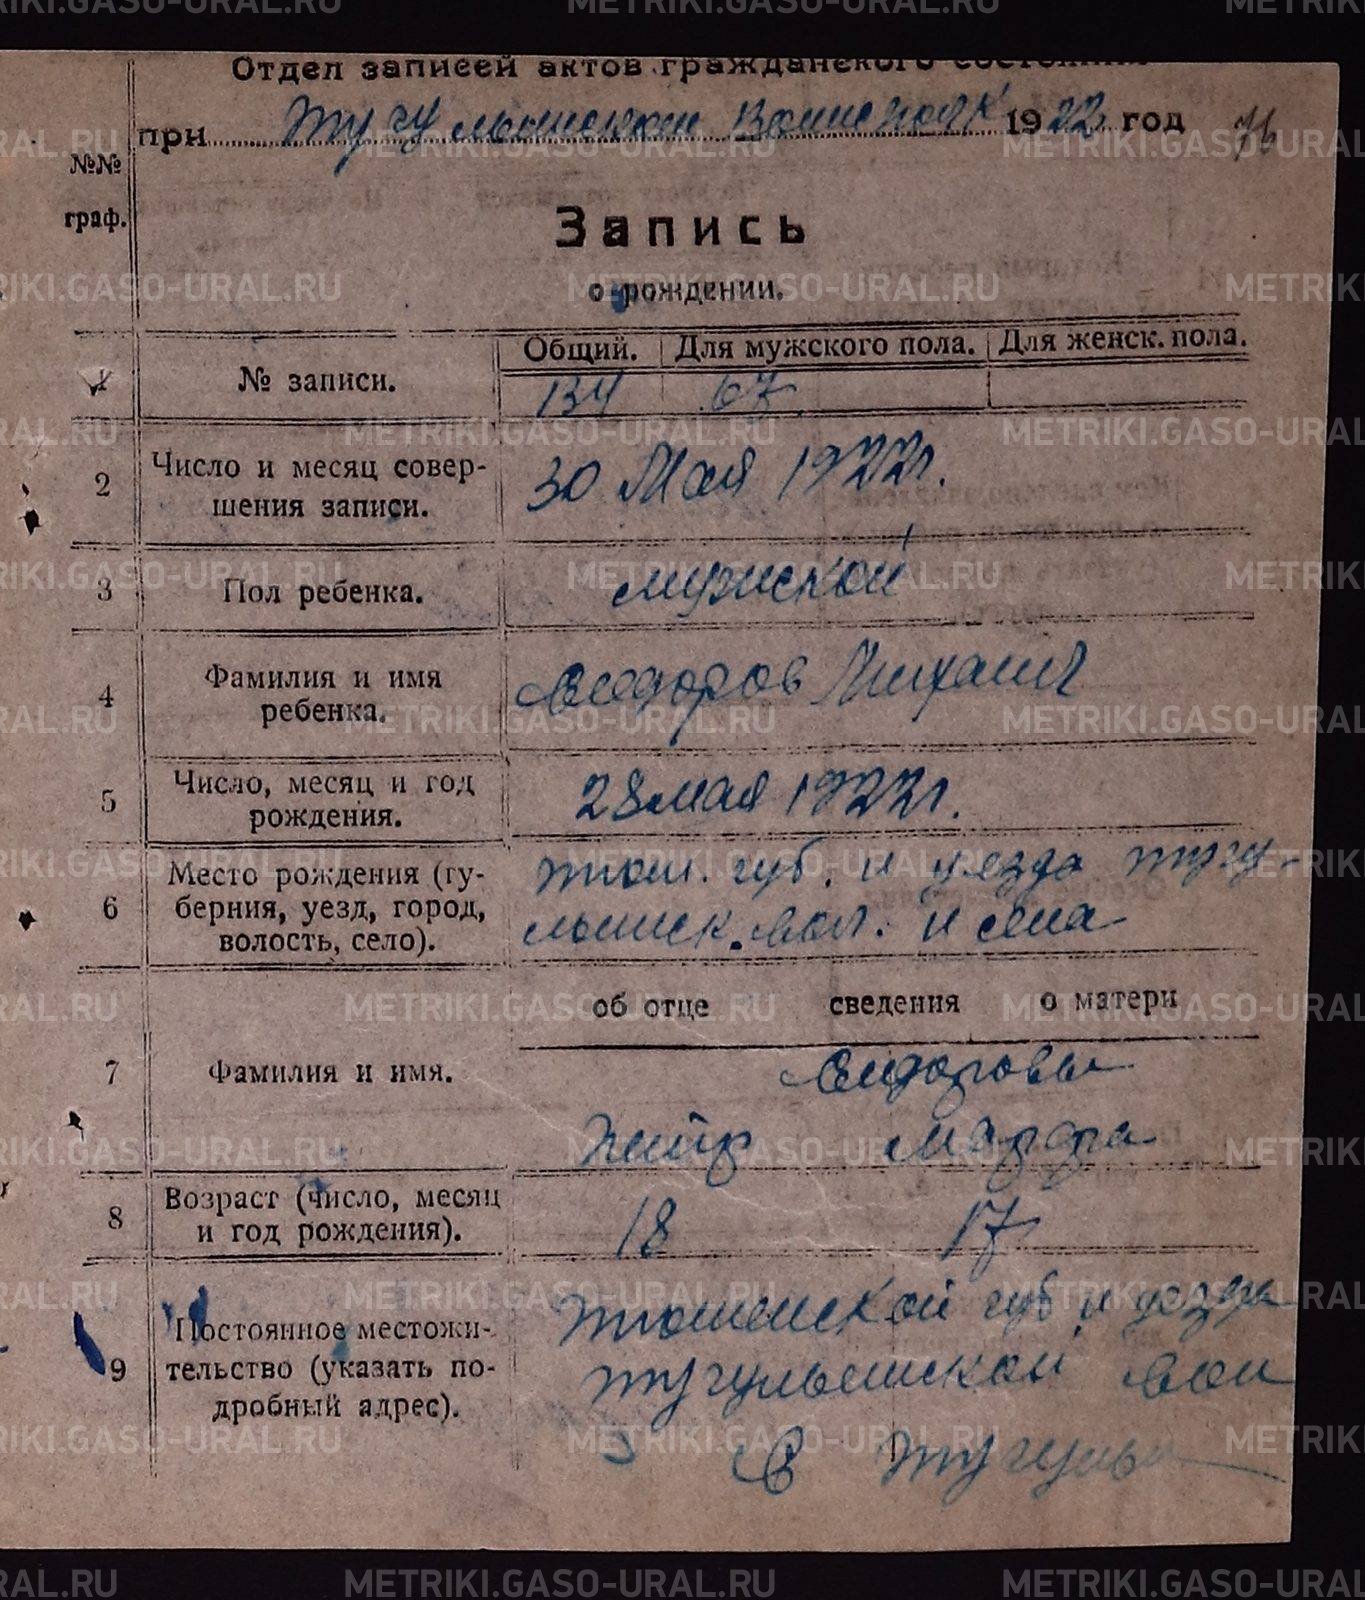 Отдел записей актов гражданского состояния
при Тугулымском Волисполк 1922 год 76
№№
граф.
Запись
о рождении.
Общий. Для мужского пола. Для женск. пола.
1 № записи. 134 67
2 Число и месяц совер-
шения записи. 30 Мая 1922 г.
3 Пол ребенка. мужской
4 Фамилия и имя
ребенка. Сидоров Михаил
5 Число, месяц и год
рождения. 28 мая 1922 г.
6 Место рождения (гу-
берния, уезд, город,
волость, село). тюм. губ. и уезда тугу-
лымск. вол. и села
об отце сведения о матери
7 Фамилия и имя. Сидоровы
Петр Марфа
8 Возраст (число, месяц
и год рождения). 18 17
9 Постоянное местожи-
тельство (указать по-
дробный адрес). тюменской губ. и уезда
тугулымской вол
С тугулым
METRIKI.GASO-URAL.RU